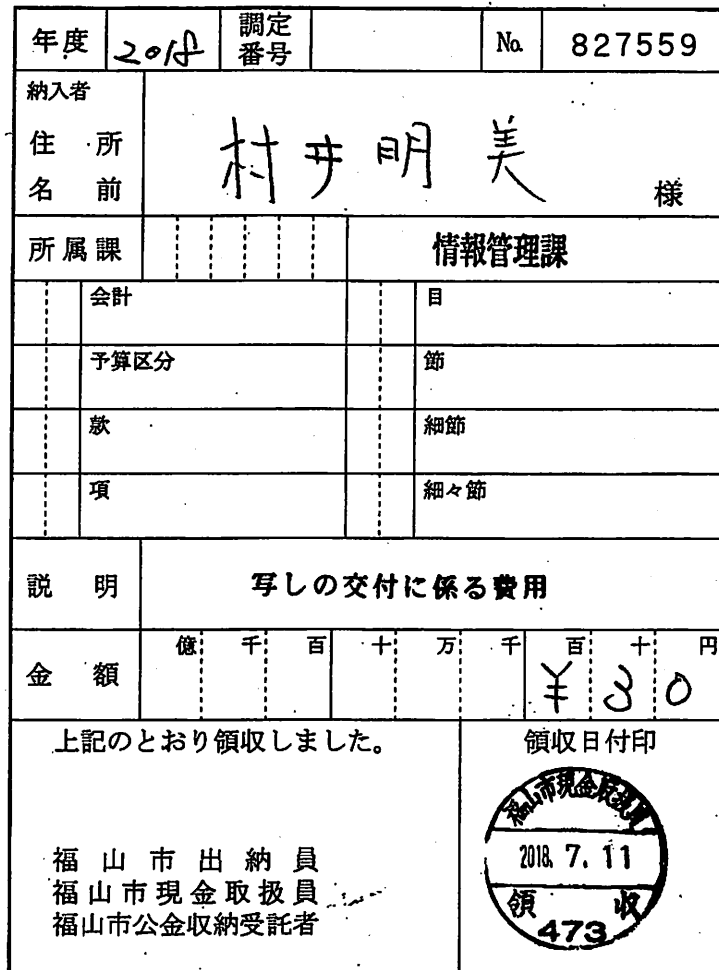 年度 2018 調定番号 No. 827559
納入者
住所
名前 村井明美 様
所属課 情報管理課
会計 目
予算区分 節
款 細節
項 細々節
説明 写しの交付に係る費用
億 千 百 十 万 千 百 十 円
金額 ¥30
上記のとおり領収しました。 領収日付印
福山市出納員
福山市現金取扱員
福山市公金収納受託者
福山市現金取扱員
2018. 7. 11
領収
473